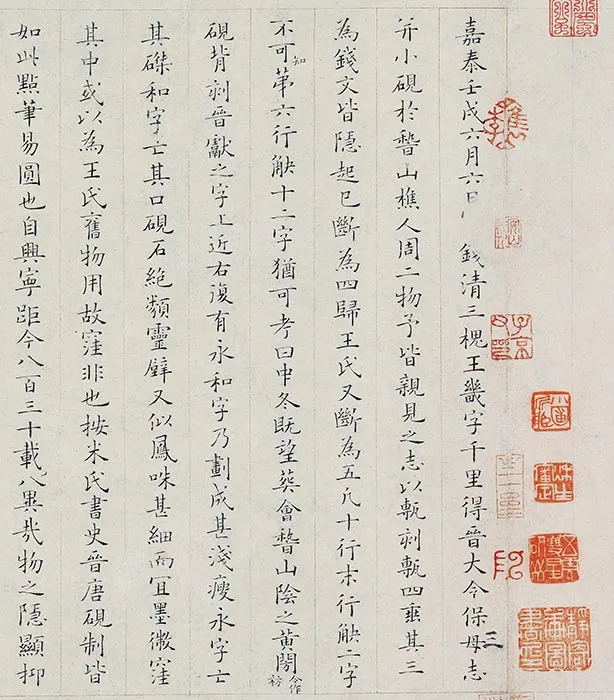 檇李
子京父印
三
嘉泰壬戌六月六日 錢清三槐王畿字千里得晉大令保母志
并小硯於稽山樵人周二物予皆親見之志以甎刻甎四垂其三
為錢文皆隱起已斷為四歸王氏又斷為五凡十行末行觖二字
不可知第六行觖十二字猶可考曰中冬既望葬會稽山陰之黃閍今作祊
硯背刻晉獻之字上近右復有永和字乃劃成甚淺瘦永字亡
其磔和字亡其口硯石絕類靈璧又似鳳咮甚細而宜墨微窪
其中或以為王氏舊物用故窪非也按米氏書史晉唐硯制皆
如此點筆易圓也自興寧距今八百三十載八異哉物之隱顯抑